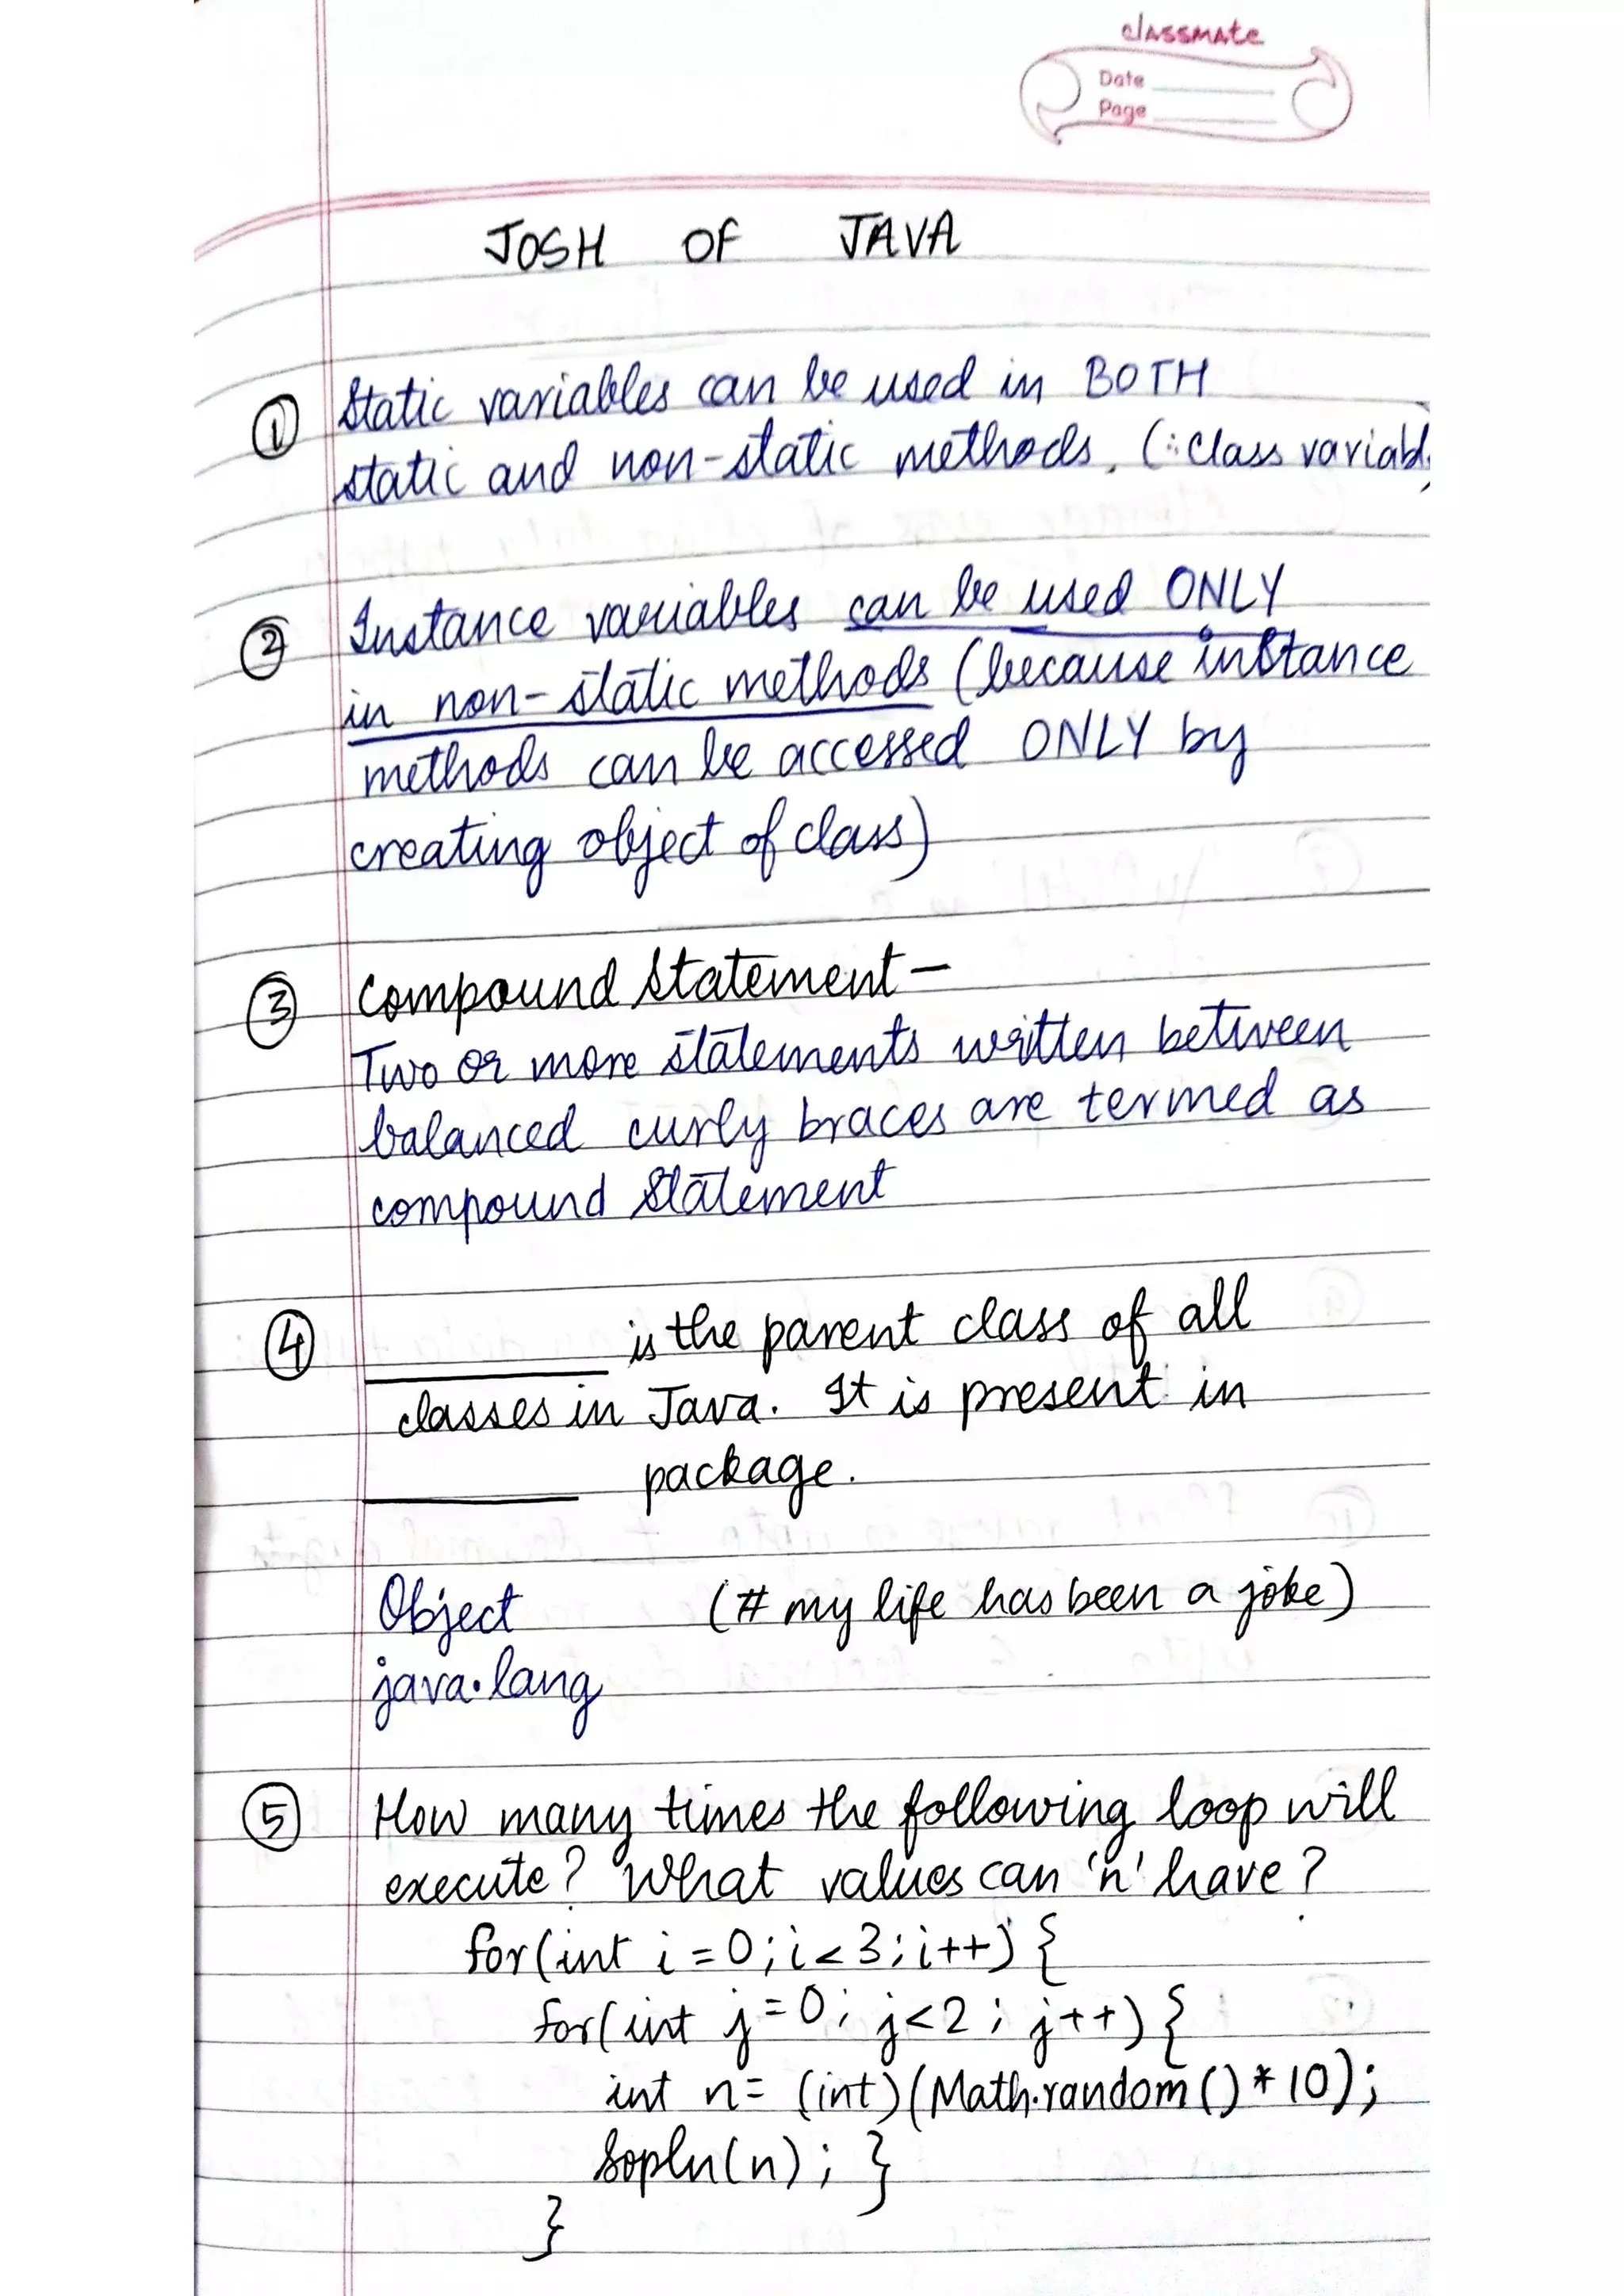 classmate
Date
Page
JOSH OF JAVA
① Static variables can be used in BOTH
static and non-static methods. (∵ Class variabl
② Instance variables can be used ONLY
in non-static methods (because instance
methods can be accessed ONLY by
creating object of class)
③ Compound Statement –
Two or more statements written between
balanced curly braces are termed as
compound Statement
④ ________ is the parent class of all
classes in Java. It is present in
________ package.
Object (# my life has been a joke)
java.lang
⑤ How many times the following loop will
execute? What values can 'n' have?
for(int i = 0; i < 3; i++) {
for(int j = 0; j < 2; j++) {
int n = (int)(Math.random()*10);
Sopln(n); }
}